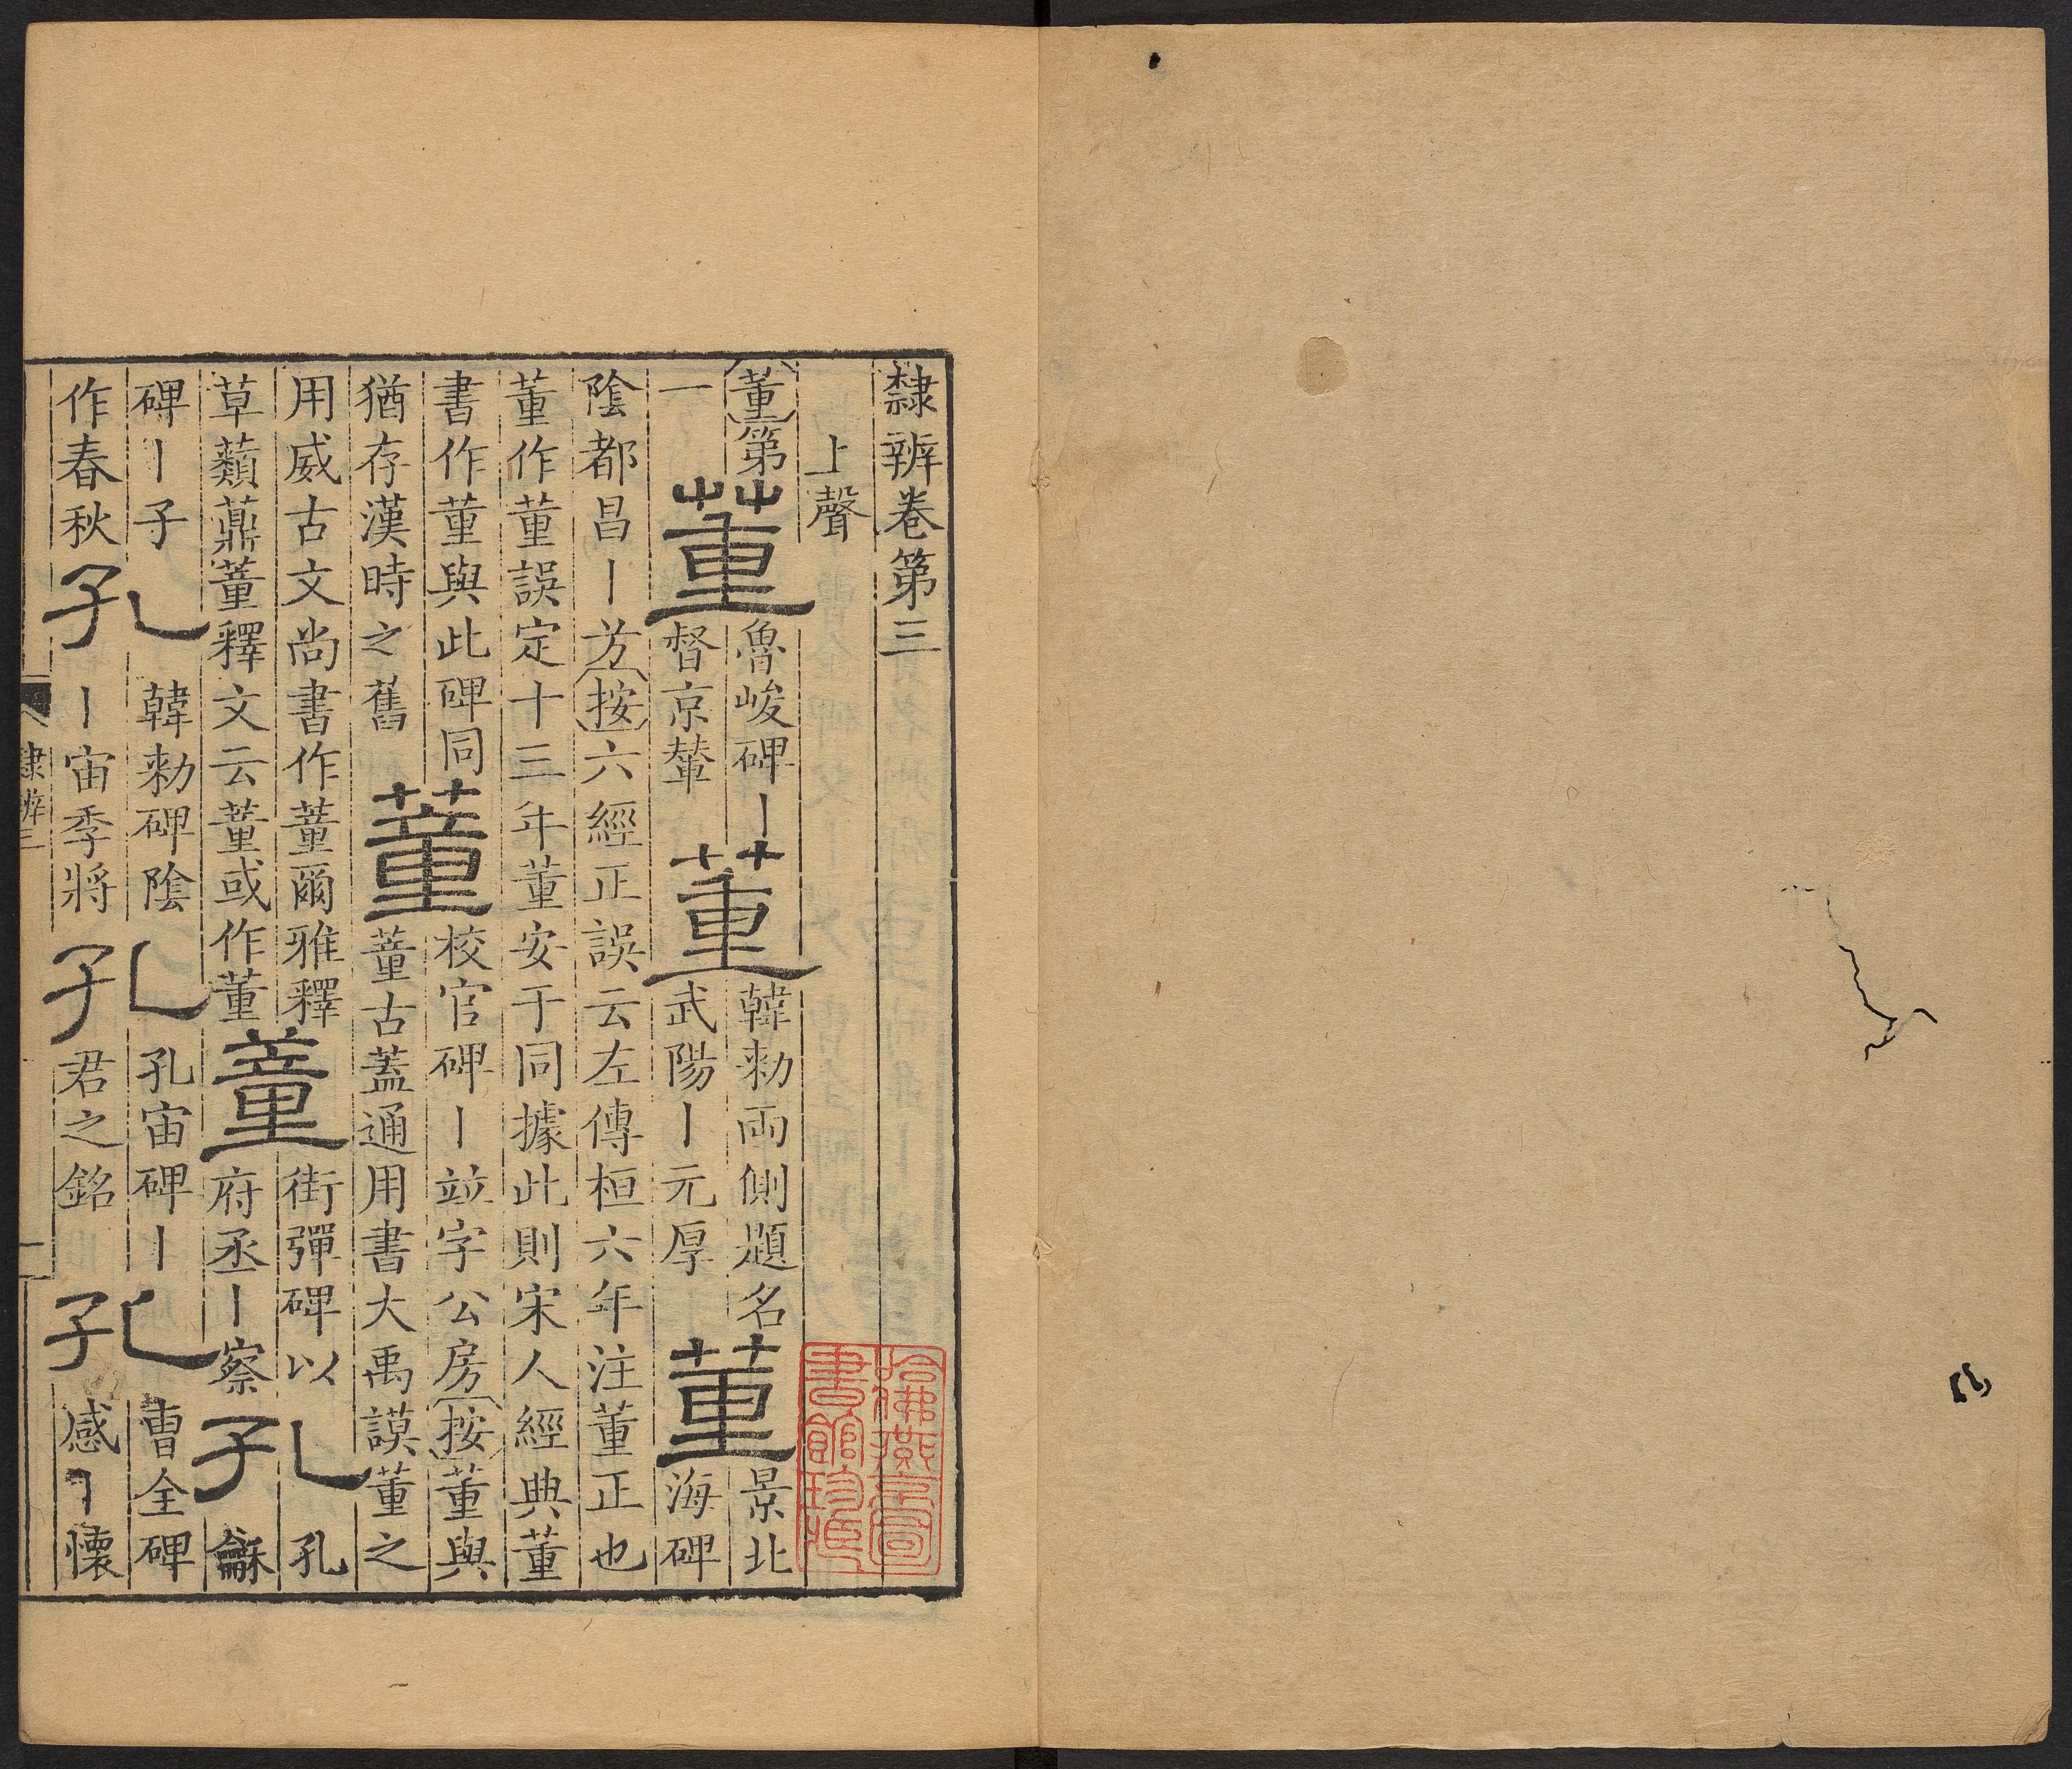 隸辨卷第三
上聲
董第董魯峻碑〡董韓勑兩側題名董景北
一督京輦武陽〡元厚海碑
陰都昌〡芳按六經正誤云左傳桓六年注董正也
董作董誤定十三年董安于同據此則宋人經典董
書作董與此碑同蕫校官碑〡竝字公房按董與
猶存漢時之舊蕫古蓋通用書大禹謨董之
用威古文尚書作蕫爾雅釋蕫街彈碑以孔孔
草蘱薡蕫釋文云蕫或作董府丞〡察龢
碑〡子孔韓勑碑陰孔孔宙碑〡孔曹全碑
作春秋〡宙季將君之銘感〡懷
隸辨三
一
哈佛燕京圖
書館珍藏